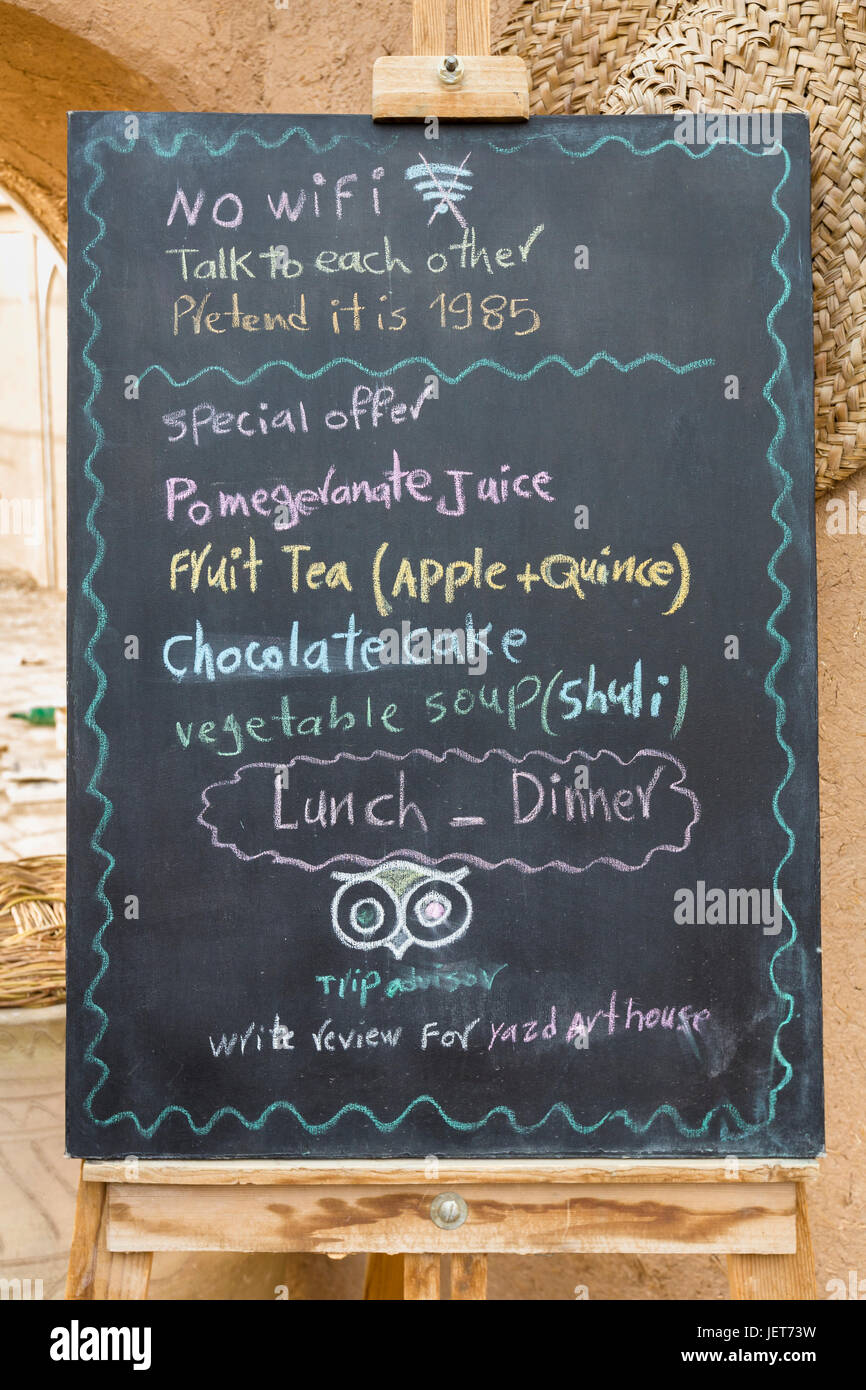 NO WiFi
Talk to each other
Pretend it is 1985
special offer
Pomegeranate Juice
Fruit Tea (Apple+Quince)
chocolate cake
vegetable soup (Shuli)
Lunch - Dinner
Tripadvisor
write review For Yazd Art house
alamy
Image ID: JET73W
www.alamy.com